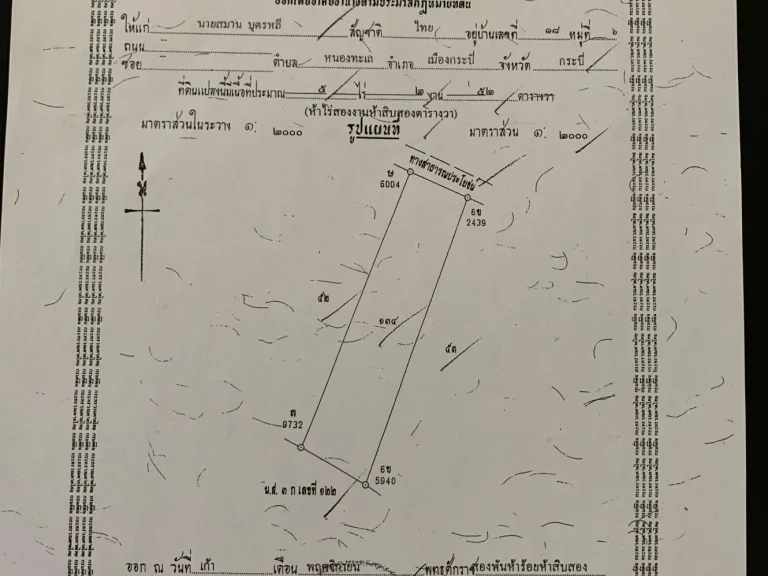 ออกโดยอาศัยอำนาจตามประมวลกฎหมายที่ดิน
ให้แก่ นายสมาน บุตรหลี สัญชาติ ไทย อยู่บ้านเลขที่ ๑๘ หมู่ที่ ๖
ถนน
ซอย ตำบล หนองทะเล อำเภอ เมืองกระบี่ จังหวัด กระบี่
ที่ดินแปลงนี้มีเนื้อที่ประมาณ ๕ ไร่ ๒ งาน ๕๒ ตารางวา
(ห้าไร่สองงานห้าสิบสองตารางวา)
มาตราส่วนในระวาง ๑: ๒๐๐๐ รูปแผนที่ มาตราส่วน ๑: ๒๐๐๐
ทางสาธารณประโยชน์
ษ
6004
6ข
2439
น
๕๒
๑๓๔
๕๓
ต
9732
6ข
5940
น.ส. ๓ ก เลขที่ ๑๒๒
ออก ณ วันที่ เก้า เดือน พฤศจิกายน พุทธศักราช สองพันห้าร้อยห้าสิบสอง